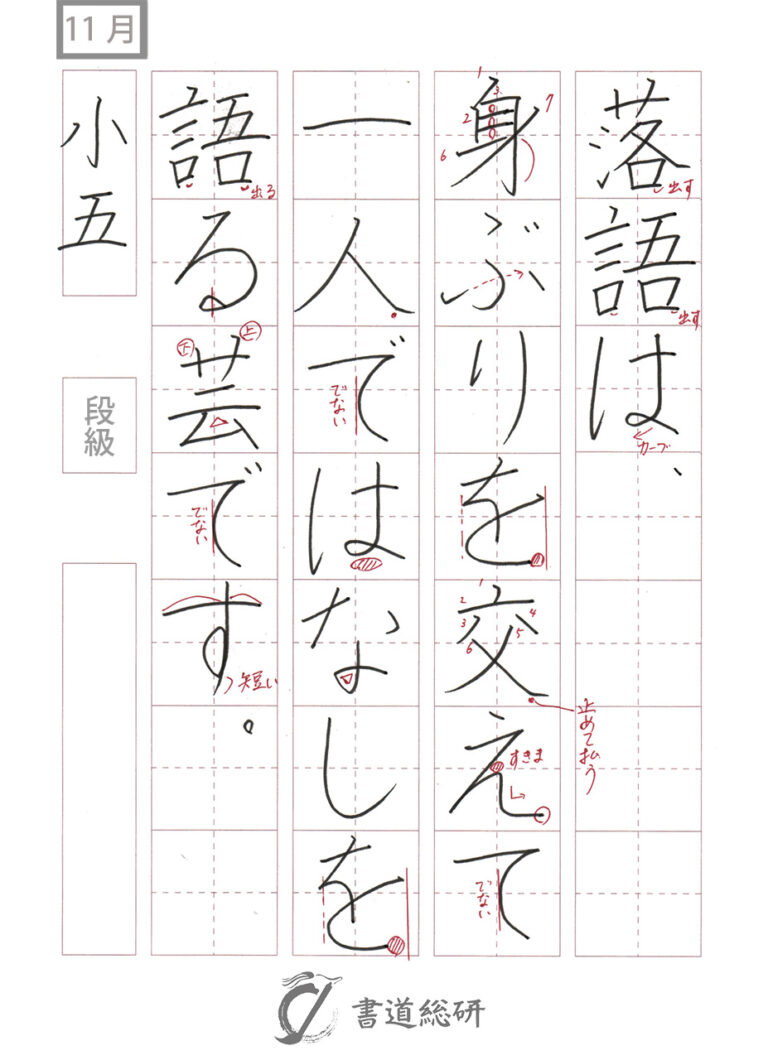 11月
落語は、
出す
出す
カーブ
身ぶりを交えて
1
2
3
6
7
1
2
3
4
5
6
止めて払う
すきま
でない
一人ではなしを
でない
語る芸です。
出る
下
上
でない
短い
小五
段級
書道総研